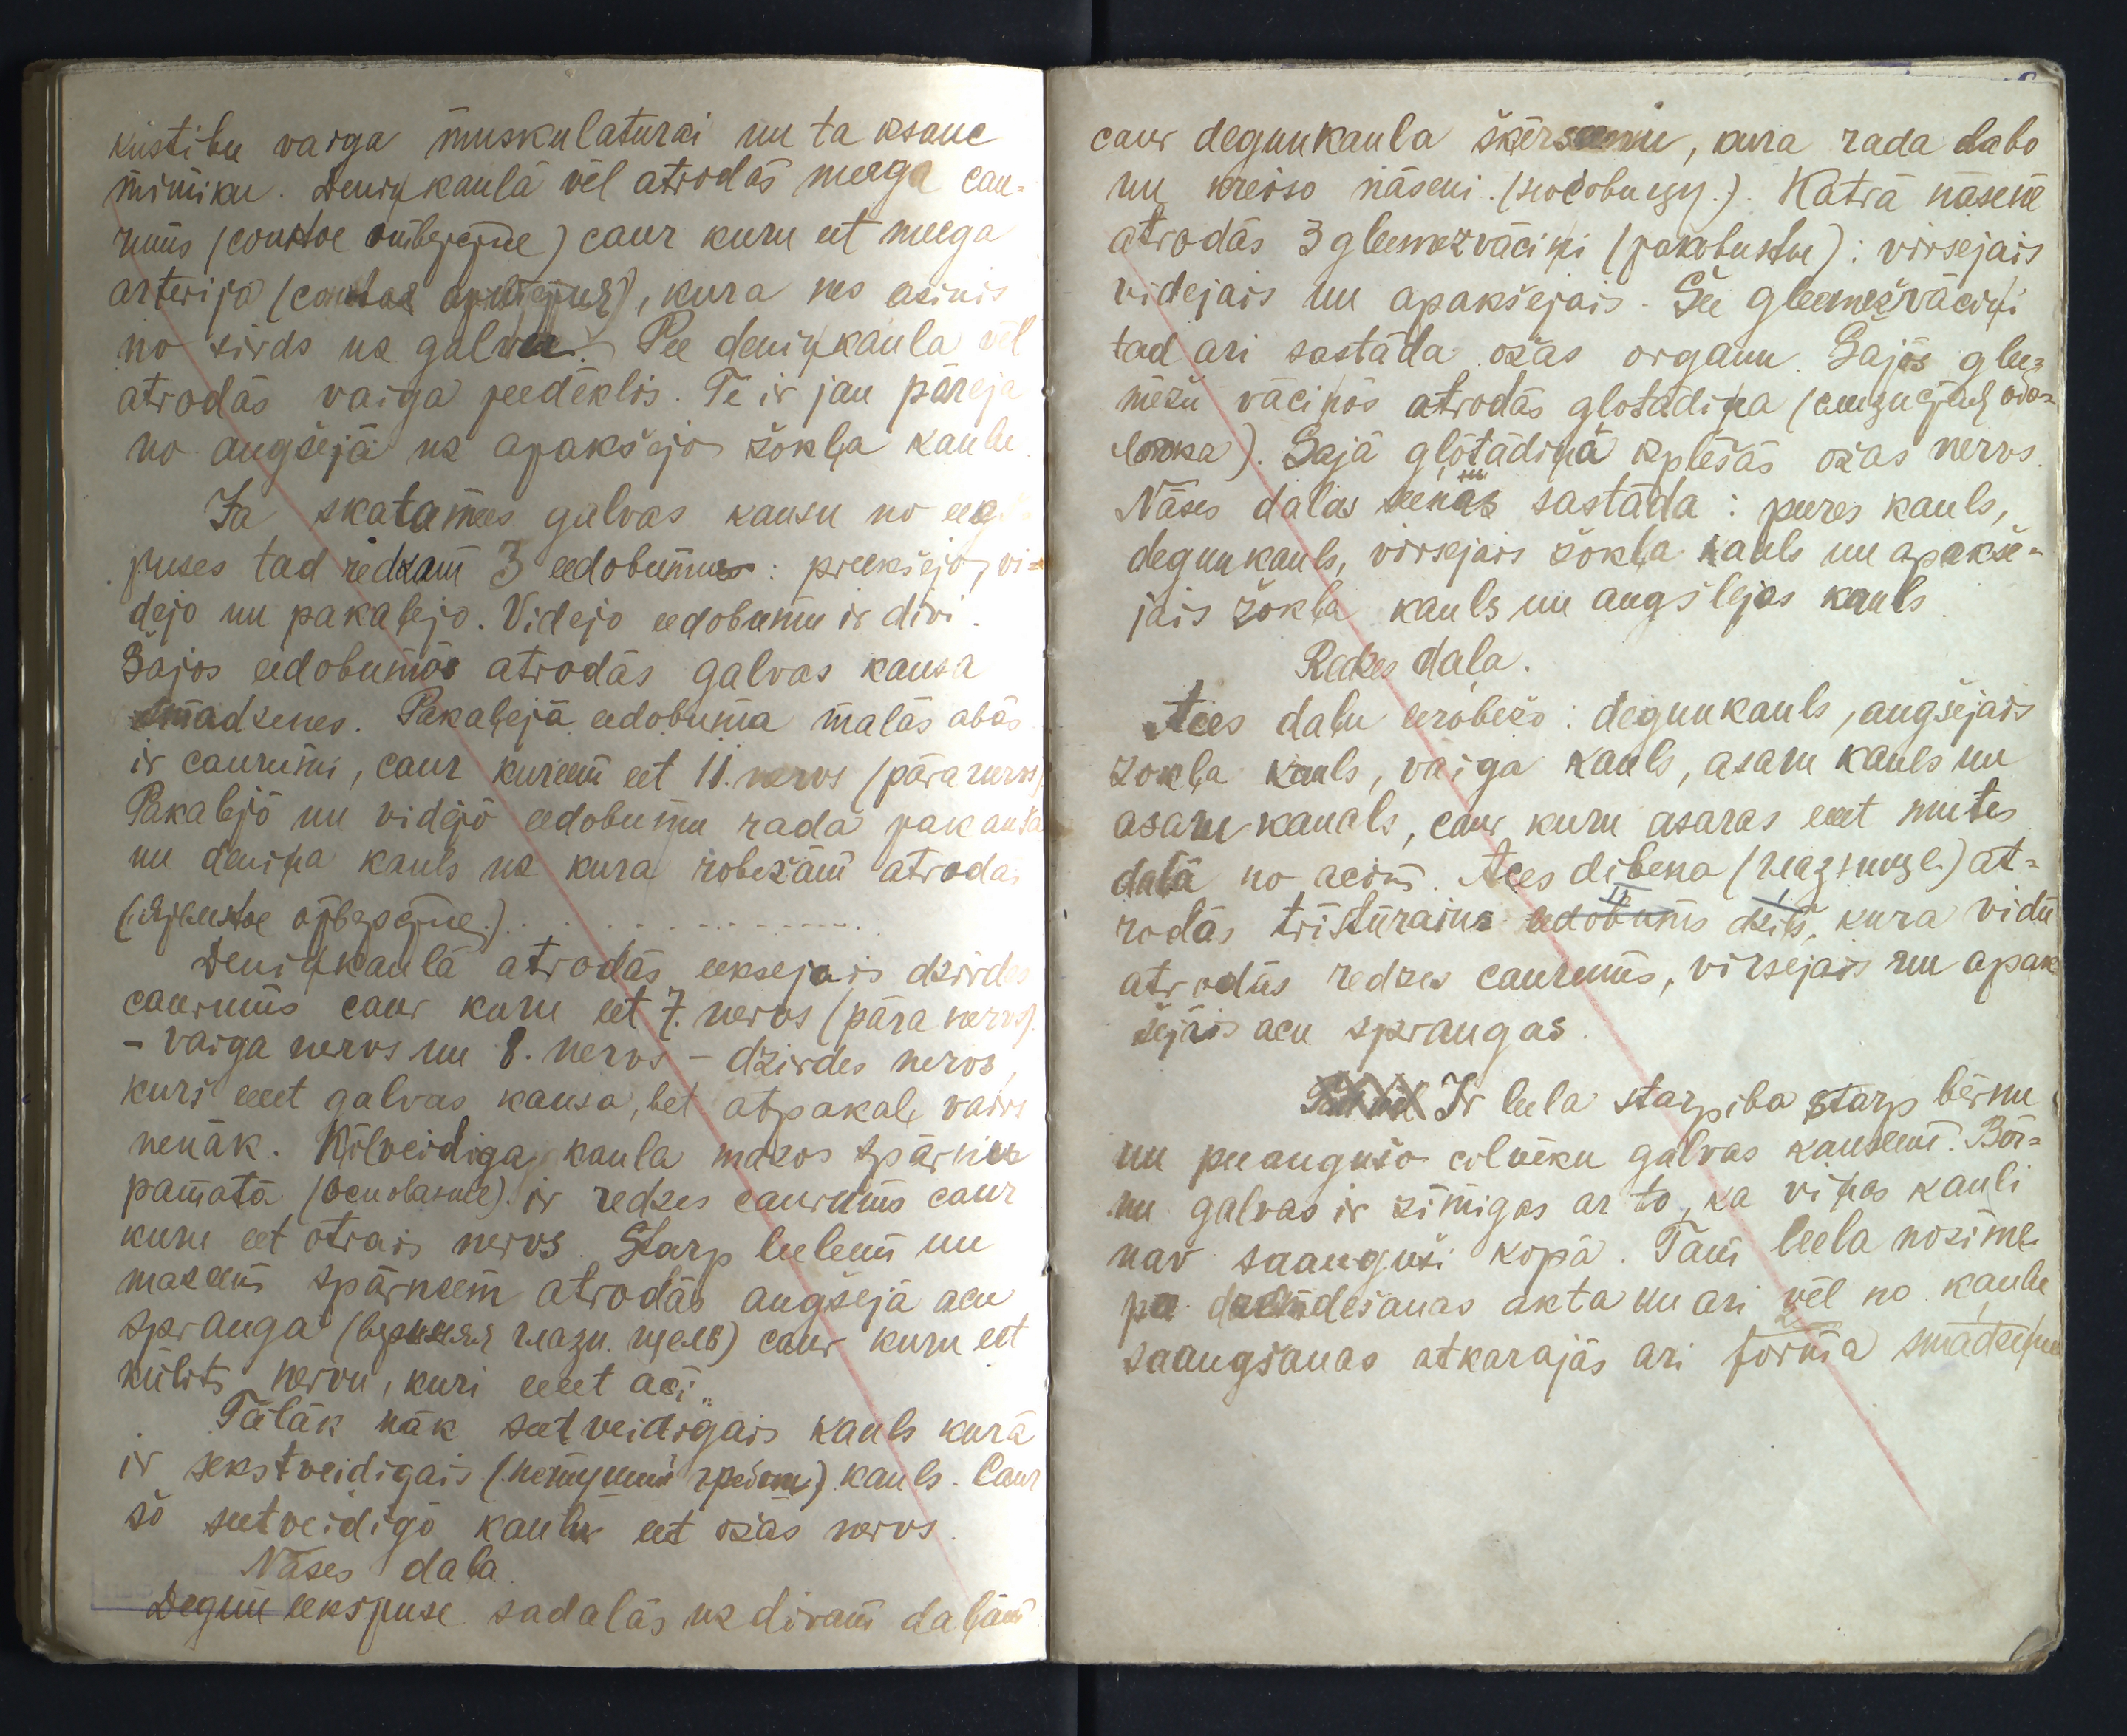 kustibu vaiga muskulaturai un ta ksauc
mimiku. Deniņkaulā vēl atrodās meega cau-
rums (сонное отверстие) caur kuru eet meega
arterija (сонная артерия), kura nes asinis
no sirds uz galvu. Pee deniņkaula vēl
atrodās vaiga peedēklis. Te ir jau pāreja
no augšejā uz apakšejo žokļa kaulu.
Ja skatamees galvas kausu no eeg
puses tad redzam 3 eedobumus: preekšejo, vi-
dejo un pakaļejo. Videjo eedobumu ir divi.
Šajos eedobumos atrodās galvas kausa
smadzenes. Pakaļejā eedobuma malās abās
ir caurumi, caur kureem eet 11. nervs (pāra nervs).
Pakaļejo un vidējo eedobumu rada pakauša
un deniņa kauls uz kura robežām atrodas
(яремное отверстие.) . . . . . . . . . . . .
Deniņkaulā atrodās eeksejais dzirdes
caurums caur kuru eet 7. nervs (pāra nervs).
- vaiga nervs un 8. nervs - dzirdes nervs,
kuri eeet galvas kausa, bet atpakaļ vairs
nenāk. Ķilveidiga kaula mazos spārnus
pamatā (основание) ir redzes caurums caur
kuru eet otrais nervs. Starp leeleem un
mazeem spārneem atrodās augšejā acu
spranga (верхняя глазн. щель) caur kuru eet
kūlits nervu, kuri eeet aci.
Tālāk nāk seetveidigais kauls kurā
ir sekstveidigais (петуший гребень) kauls. Caur
šo seetveidigo kaulu eet ožas nervs.
Nāses daļa.
Degun eekspuse sadalās uz divam daļām
caur degunkaula šķērsseenu, kura rada labo
un kreiso nāseni. (носовину.). Katrā nāsenē
atrodās 3 gleemezvāciņi (раковины): virsejais
videjais un apakšejais. Šee gleemežvāciņi
tad ari sastāda ožas organu. Šajos glee-
mežu vāciņos atrodās glotādiņa (слизистая обо-
лочка). Šajā glotādiņā izplēšās ožas nervs.
Nāses daļas seenas sastāda: peeres kauls,
degunkauls, virsejais žokļa kauls un apakše-
jais žokļa kauls un augslejas kauls.
Redzes daļa.
Acs daļu eerobežo: degunkauls, augšejais
žokļa kauls, vaiga kauls, asaru kauls un
asaru kanals, caur kuru asaras eeet mutes
daļā no acim. Acs dibena (глазнице) at-
rodās trīsstūrains eedobums dziļš, kura vidū
atrodās redzes caurums, virsejais un apak
šejais acu sprangas.
Ir leela starpiba starp bērnu
un peeaugušo cilvēku galvas kauseem. Bēr-
nu galvas ir zimigas ar to, ka viņas kauli
nav saauguši kopā. Tam leela nozime
pee dzemdešanas akta un ari vēl no kaulu
saaugšanas atkarajās ari forma smadzeņu